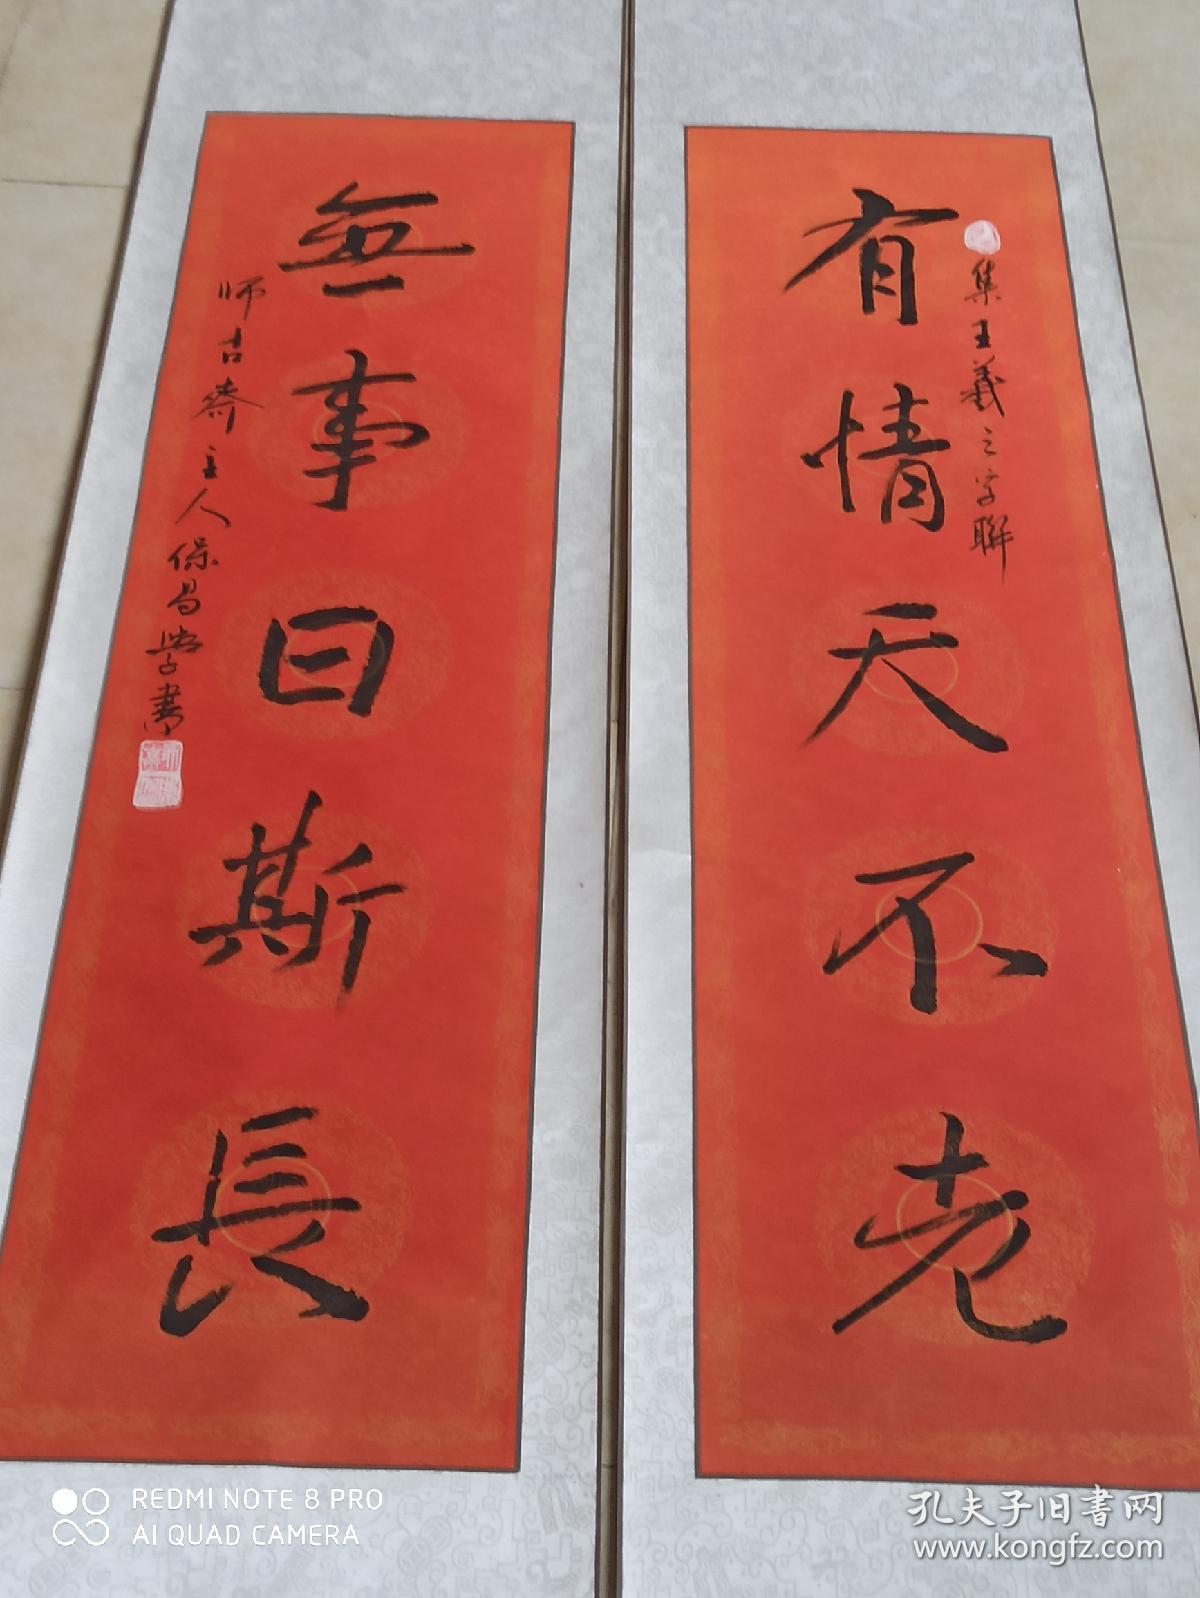 有情天不老
集王羲之字联
無事日斯長
师古斋主人保昌学书
REDMI NOTE 8 PRO
AI QUAD CAMERA
孔夫子旧书网
www.kongfz.com